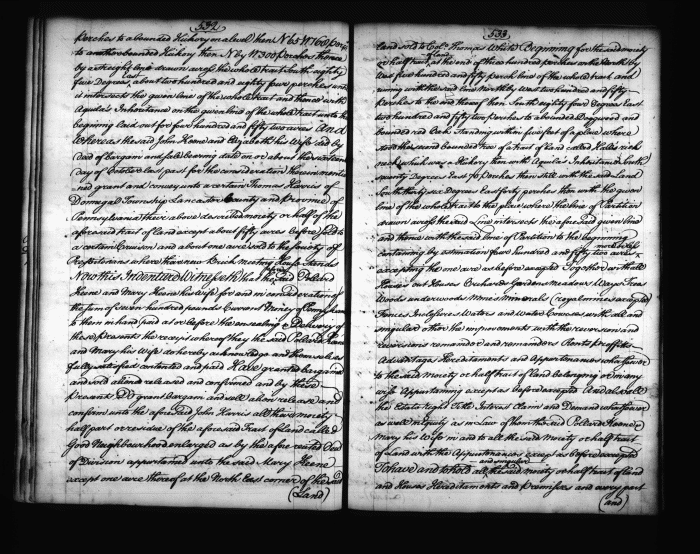 532
perches to a bounded Hickory in a level then N 65 W 160 perches
to another bounded Hickory then N by W 300 perches thence
by a straight line drawn across the whole tract South eighty
five Degrees East about two hundred and eighty four perches until
it intersects the given line of the whole tract and thence with
Aquila's Inheritance on the given line of the whole tract unto the
begining laid out for four hundred and fifty two acres And
whereas the said John Keene and Elizabeth his Wife did by
Deed of Bargain and sale bearing date on or about the sixteenth
day of October last past for the consideration therein mentio
ned grant and convey unto a certain Thomas Harris of
Donnegall Township Lancaster County and Province of
Pennsylvania their above described moiety or half of the
aforesaid tract of Land except about fifty acres before sold to
a certain and about one acre sold to the society of
Presbiterians where their new Brick meeting House Stands
Now this Indenture Witnesseth that the said Pollard
Keene and Mary Keene his Wife for and in consideration of
the sum of seven hundred pounds Current Money of Pennsylvania
to them in hand paid at or before the ensealing & Delivery of
these presents the receipt whereof they the said Pollard Keene
and Mary his Wife do hereby acknowledge and themselves
fully satisfied contented and paid Have granted bargained
and sold aliened released and confirmed and by these
Presents Do grant bargain and sell alien release and
confirm unto the aforesaid John Harris all their moiety
half part or residue of the aforesaid Tract of Land called
Good Neighbourhood enlarged as by the afore recited Deed
of Division appertained unto the said Mary Keene
except one acre thereof at the North East corner of the said
(Land)
533
land sold to Colo. Thomas White Beginning for the said moiety
or half tract of land at the end of three hundred perches on the North by
West five hundred and fifty perch line of the whole tract and
runing with the said line North by West two hundred and fifty
Perches to the end thereof then South eighty four Degrees East
two hundred and fifty two perches to a bounded Dogwood and
bounded red Oak standing within five feet of a place where
stood the second bounded tree of a tract of land called Halls rich
neck which was a Hickory then with Aquila's Inheritance South
seventy Degrees East perches then still with the said Land
South thirty six Degrees East forty perches then with the given
line of the whole tract to the place where the line of Partition
drawn across the said Line intersects the aforesaid given line
and thence with the said line of Partition to the beginning
containing by estimation four hundred and fifty two acres more or less
excepting the one acre as before excepted Together with all
Houses out Houses Orchards Gardens Meadows Ways Trees
Woods underwoods Mines Minerals (royal mines excepted)
Fences Inclosures Waters and Water Courses with all and
singular other the improvements with the reversion and
reversions remainder and remainders Rents Proffits
Advantages Hereditaments and Appurtenances whatsoever
to the said Moiety or half tract of Land belonging or in any
wise Appurtaining except as before excepted And also all
the Estate right Title Interest Claim and Demand whatsoever
as well in Equity as in Law of them the said Pollard Keene &
Mary his Wife in and to all the said Moiety or half tract
of Land with the Appurtenances except as before excepted
To have and to hold all and singular the said moiety or half tract of land
and Houses Hereditaments and Premises and every part
(and)